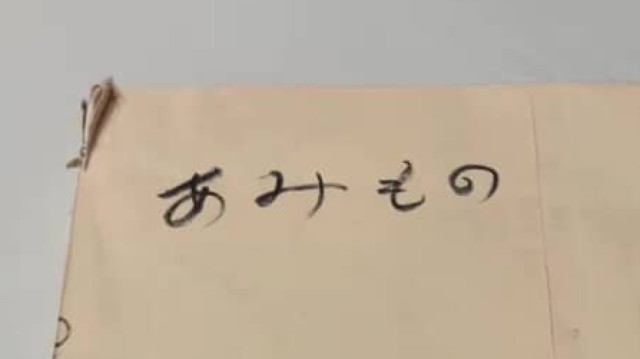 あみもの